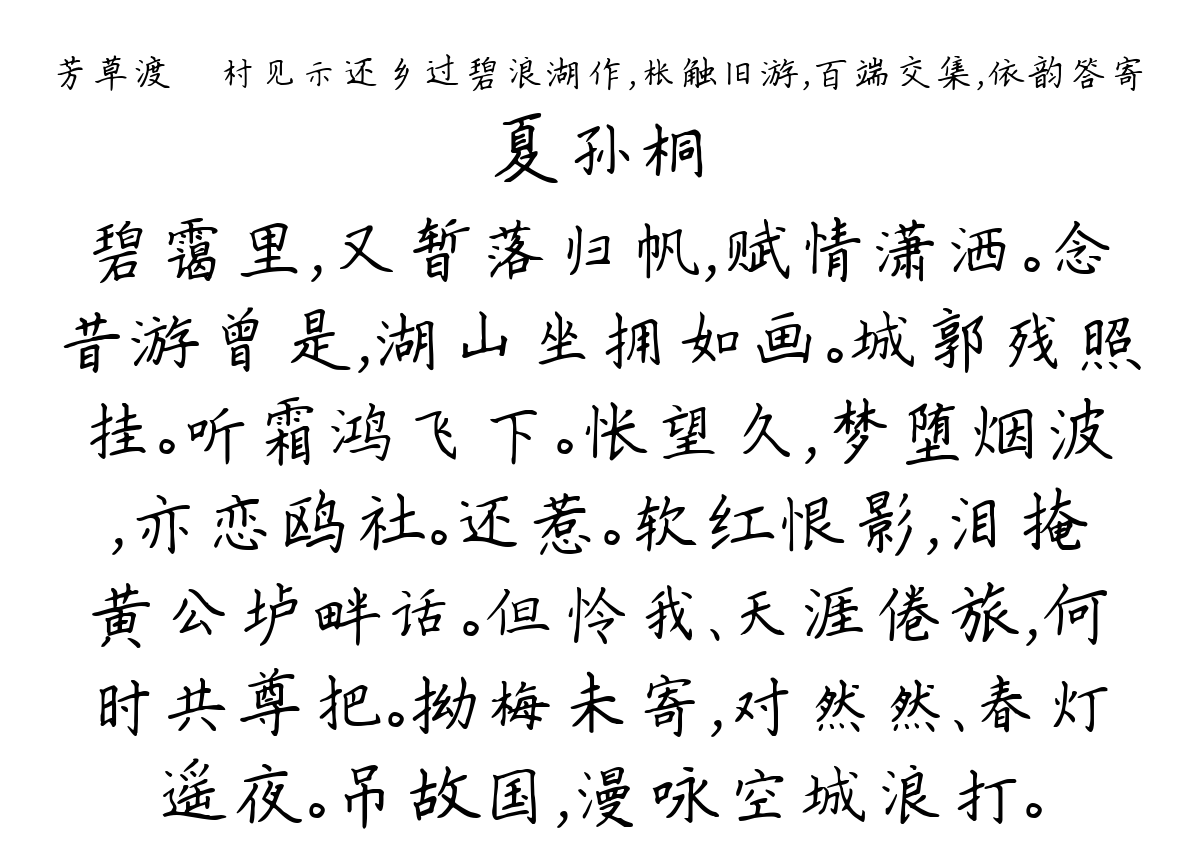 芳草渡 村见示还乡过碧浪湖作,枨触旧游,百端交集,依韵答寄
夏孙桐
碧霭里,又暂落归帆,赋情潇洒。念
昔游曾是,湖山坐拥如画。城郭残照
挂。听霜鸿飞下。怅望久,梦堕烟波
,亦恋鸥社。还惹。软红恨影,泪掩
黄公垆畔话。但怜我、天涯倦旅,何
时共尊把。拗梅未寄,对然然、春灯
遥夜。吊故国,漫咏空城浪打。